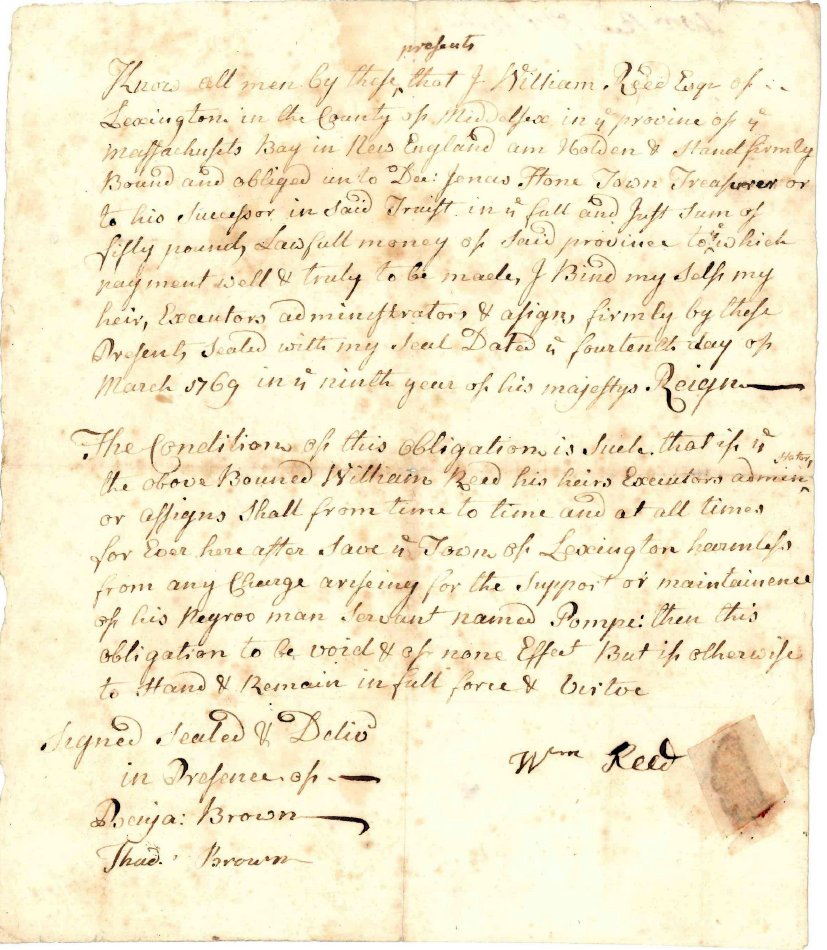 presents
Know all men by these that I William Reed Esqr of
Lexington in the County of Middlesex in ye provinc of ye
Massachusets Bay in New England am Holden & Stand firmly
Bound and obliged unto Dea: Jonas Stone Town Treasurer or
to his Successor in said Trust in ye full and Just Sum of
fifty pounds Lawfull money of said province to ye which
payment well & truly to be made, I Bind my self my
heirs, Executors administrators & assigns firmly by these
Presents, Sealed with my Seal Dated ye fourtenth day of
March 1769 in ye ninth year of his majestys Reign
The Condition of this obligation is Such that if ye
the above Bouned William Reed his heirs Executors adminstators
or assigns Shall from time to time and at all times
for Ever here after Save ye Town of Lexington harmless
from any Charge ariseing for the Support or maintainence
of his Negroo man Servant named Pompe: then this
obligation to be void & of none Effect But if otherwise
to Stand & Remain in full force & Virtue
Signed Sealed & Delivd
in Presence of
Wm Reed
Benja: Brown
Thad: Brown